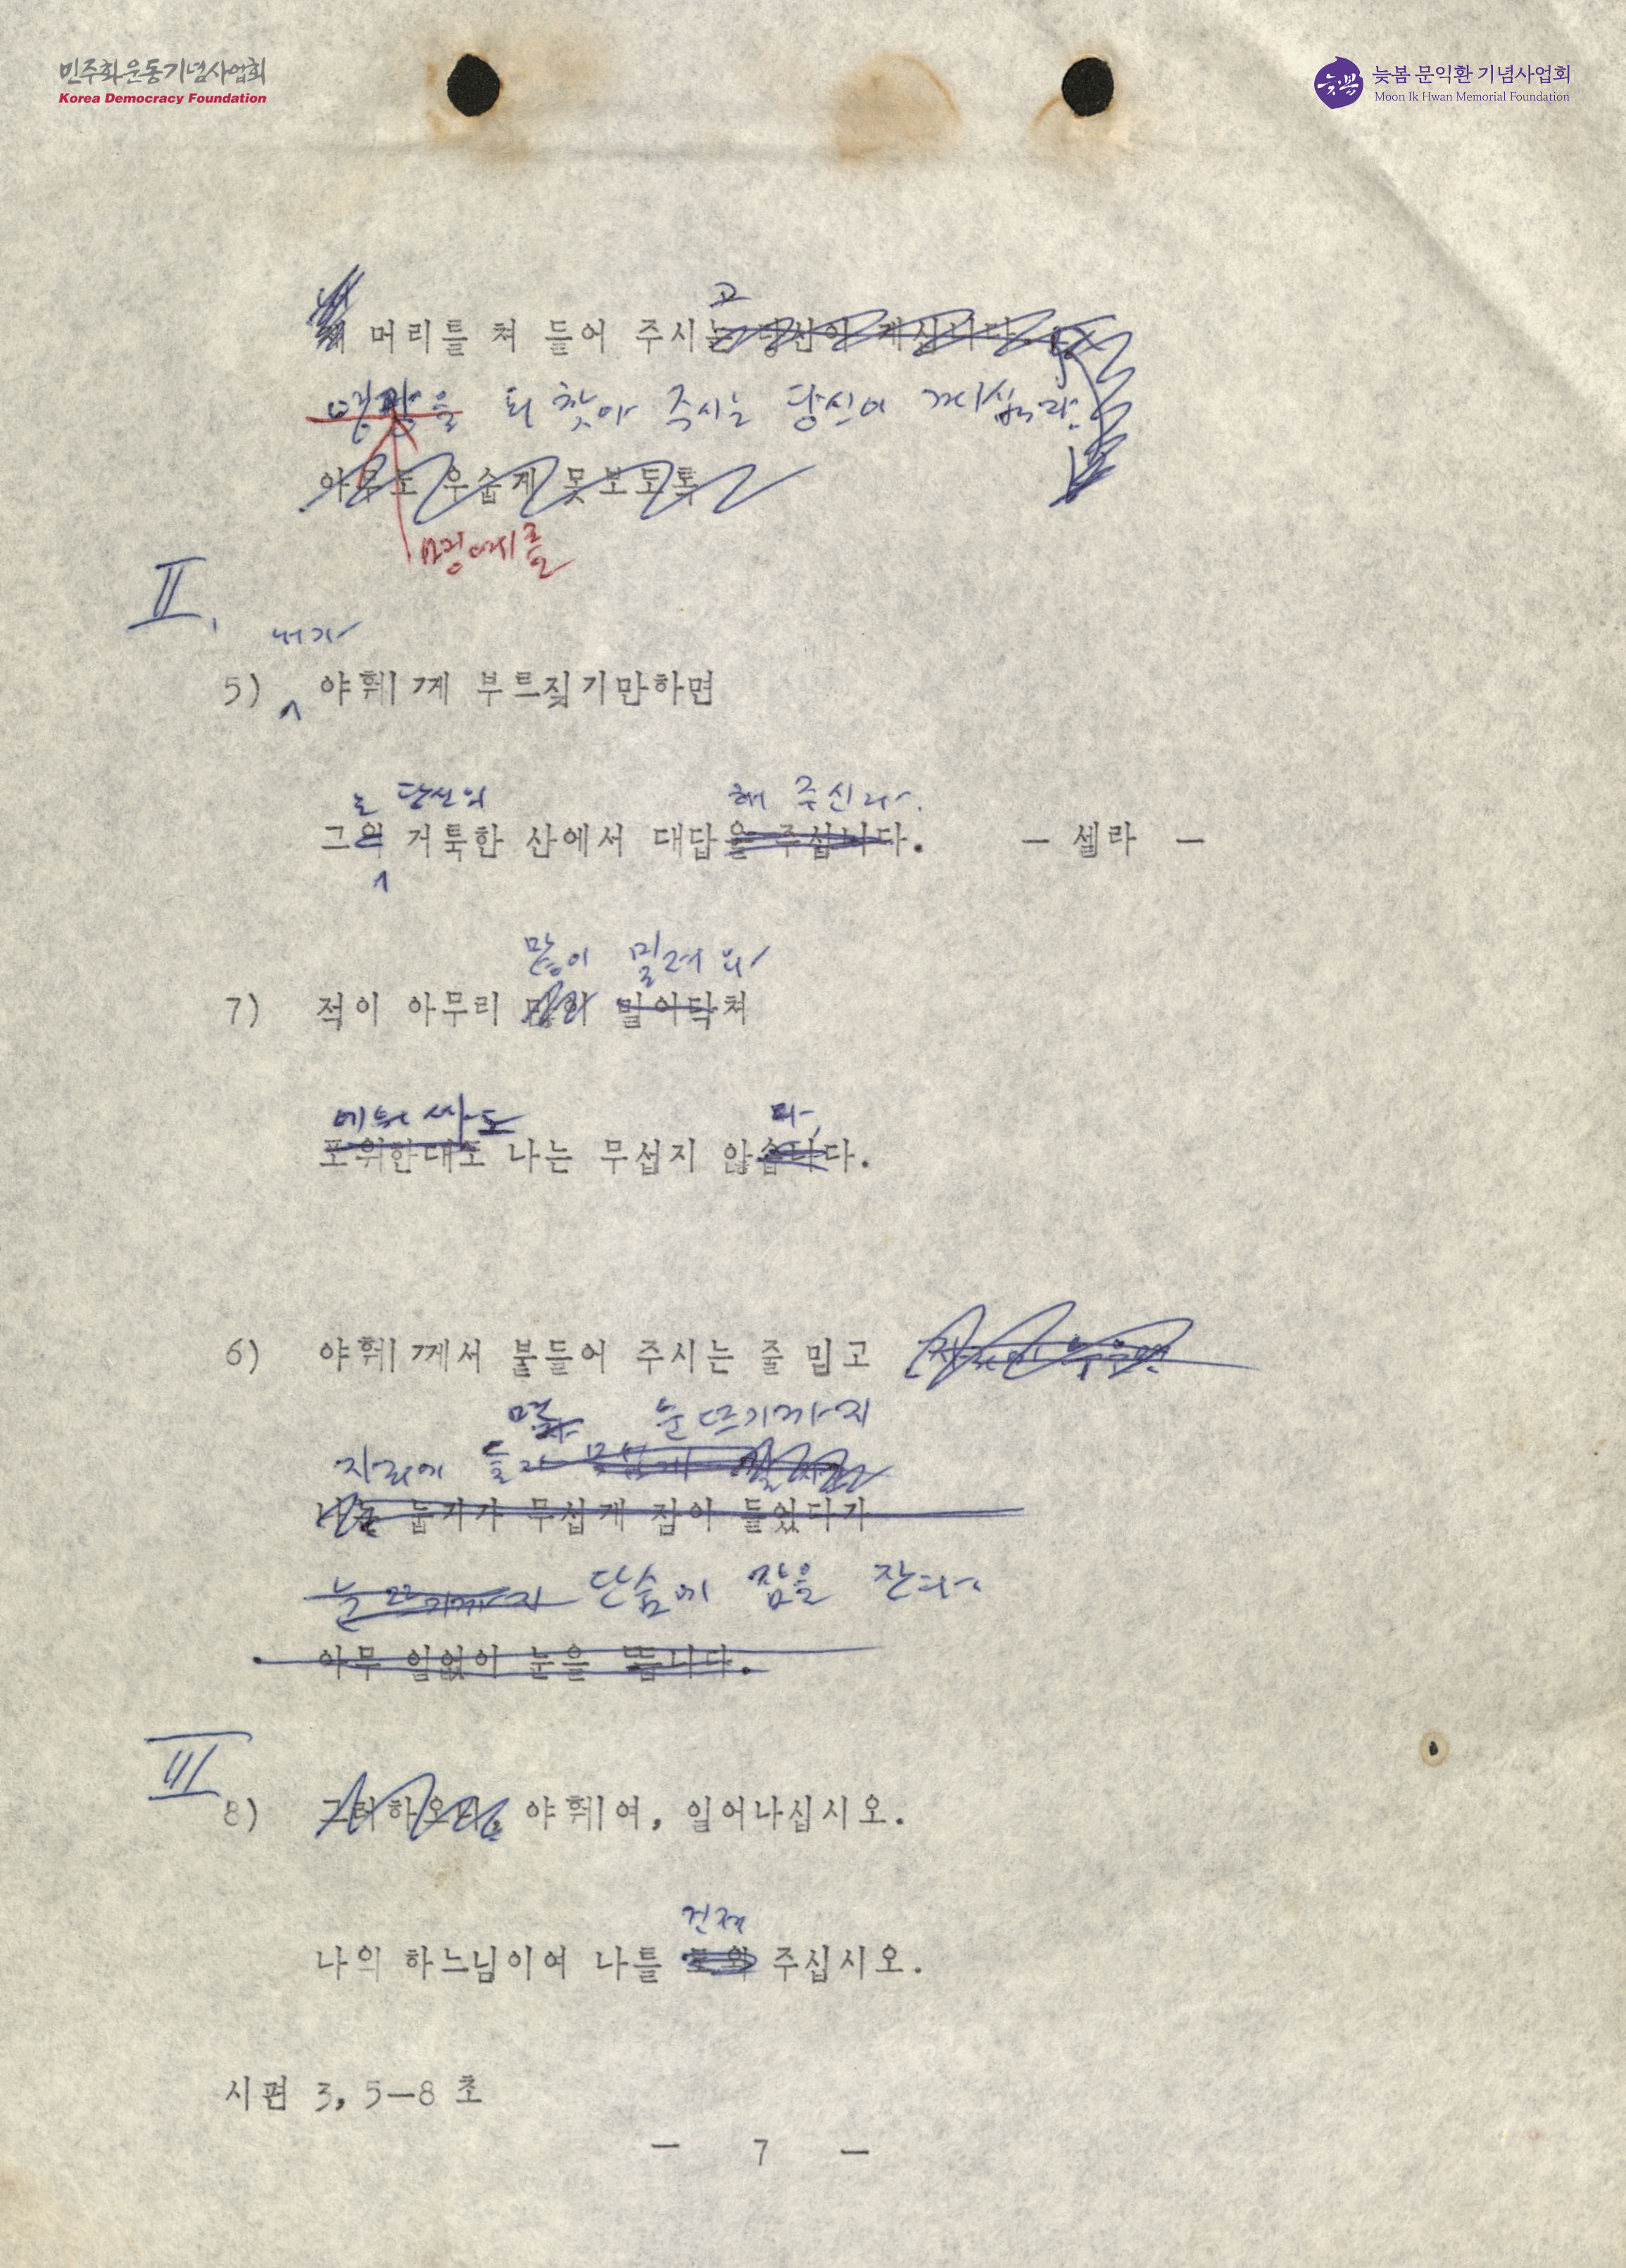 민주화운동기념사업회
Korea Democracy Foundation
늦봄 문익환 기념사업회
Moon Ik Hwan Memorial Foundation
고
머리를 쳐 들어 주시는 당신이 계십니다
을 되 찾아 주시는 당신이 계십니다.
아무도 우습게 못보도록
명예를
II.
내가
5) 야훼께 부르짖기만하면
는 당신의 해 주신다.
그의 거룩한 산에서 대답을 주십니다. — 셀라 —
많이 밀려 와
7) 적이 아무리 많이 밀어닥쳐
에워 싸도 다.
포위한대도 나는 무섭지 않습니다.
6) 야훼께서 붙들어 주시는 줄 믿고
눈 뜨기까지
자리에 들자
나는 눕자가 무섭게 잠이 들었다가
눈 뜨기까지 단숨에 잠을 잔다.
아무 일없이 눈을 뜹니다.
III
8) 그러하오니, 야훼여, 일어나십시오.
건져
나의 하느님이여 나를 도와 주십시오.
시편 3, 5—8 초
— 7 —